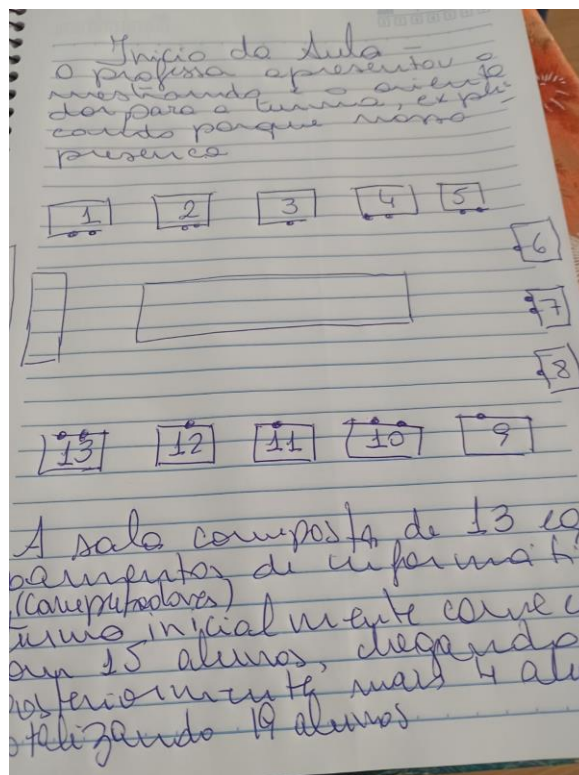 Início da Aula -
O professor apresentou o
mestrando e o orienta
dor para a turma, expli-
cando porque nossa
presença
1 2 3 4 5
6
7
8
13 12 11 10 9
A sala composta de 13 eq
pamentos de informáti
(computadores)
turma inicialmente come
com 15 alunos, chegando
posteriormente mais 4 alu
totalizando 19 alunos